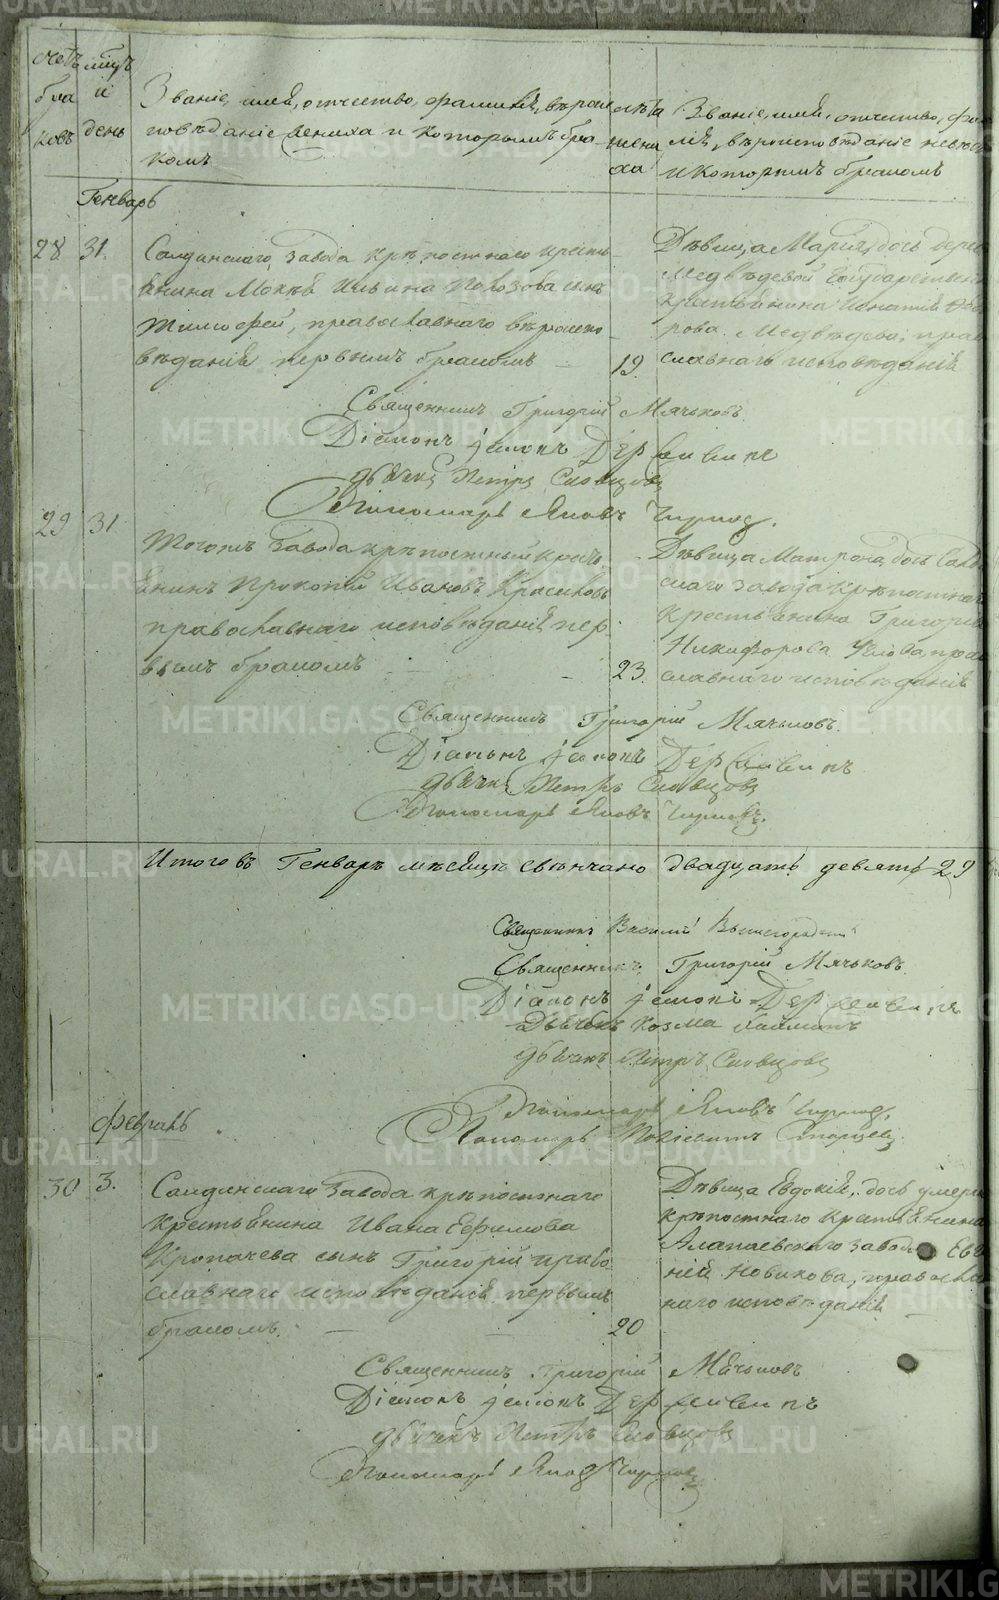 METRIKI.GASO-URAL.RU
счетъ бра ковъ
мѣсяцъ и день
Званіе, имя, отчество, фамилія, вѣроис
повѣданіе жениха и которымъ бра-
комъ
лѣта жени ха
Званіе, имя, отчество, фа
лія, вѣроисповѣданіе невѣс
и которымъ бракомъ
Генварь
28 31. Салдинскаго завода крѣпостнаго кресть-
янина Мокѣя Ильина сынъ
Тимофей, православнаго вѣроиспо-
вѣданія первымъ бракомъ 19.
Дѣвица Марія, дочь дерев
Медвѣдевой Государствен
крестьянина Игнатія Фео
рова Медвѣдева, прав
славнаго исповѣданія
Священникъ Григорій Мячковъ
Діаконъ Іаковъ
дьячекъ Петръ Словцовъ
Пономарь Яковъ
29 31. Тогожъ завода крѣпостный крест
янинъ Прокопій Ивановъ Красиковъ
православнаго исповѣданія пер-
вымъ бракомъ 23.
Дѣвица Матрона, дочь Салди
скаго завода крѣпостнаго
крестьянина Григорія
Никифорова прав
славнаго исповѣданія
Священникъ Григорій Мячковъ.
Діаконъ Іаковъ
дьячекъ Петръ Словцовъ
Пономарь Яковъ
Итого въ Генварѣ мѣсяцѣ свѣнчано двадцать девять 29
Священникъ Василій
Священникъ Григорій Мячковъ.
Діаконъ Іаковъ
Дьячекъ Козма
дьячекъ Петръ Словцовъ
Пономарь Яковъ
Пономарь Старцевъ
Февраль
30 3. Салдинскаго завода крѣпостнаго
крестьянина Ивана Ефимова
Кропачева сынъ Григорій право-
славнаго исповѣданія первымъ
бракомъ. 20
Дѣвица Евдокія, дочь умерш
крѣпостнаго крестьянина
Алапаевскаго завода Евге
ній Новикова, правосла
наго исповѣданія
Священникъ Григорій Мячковъ
Діаконъ Іаковъ
дьячекъ Петръ Словцовъ
Пономарь Яковъ